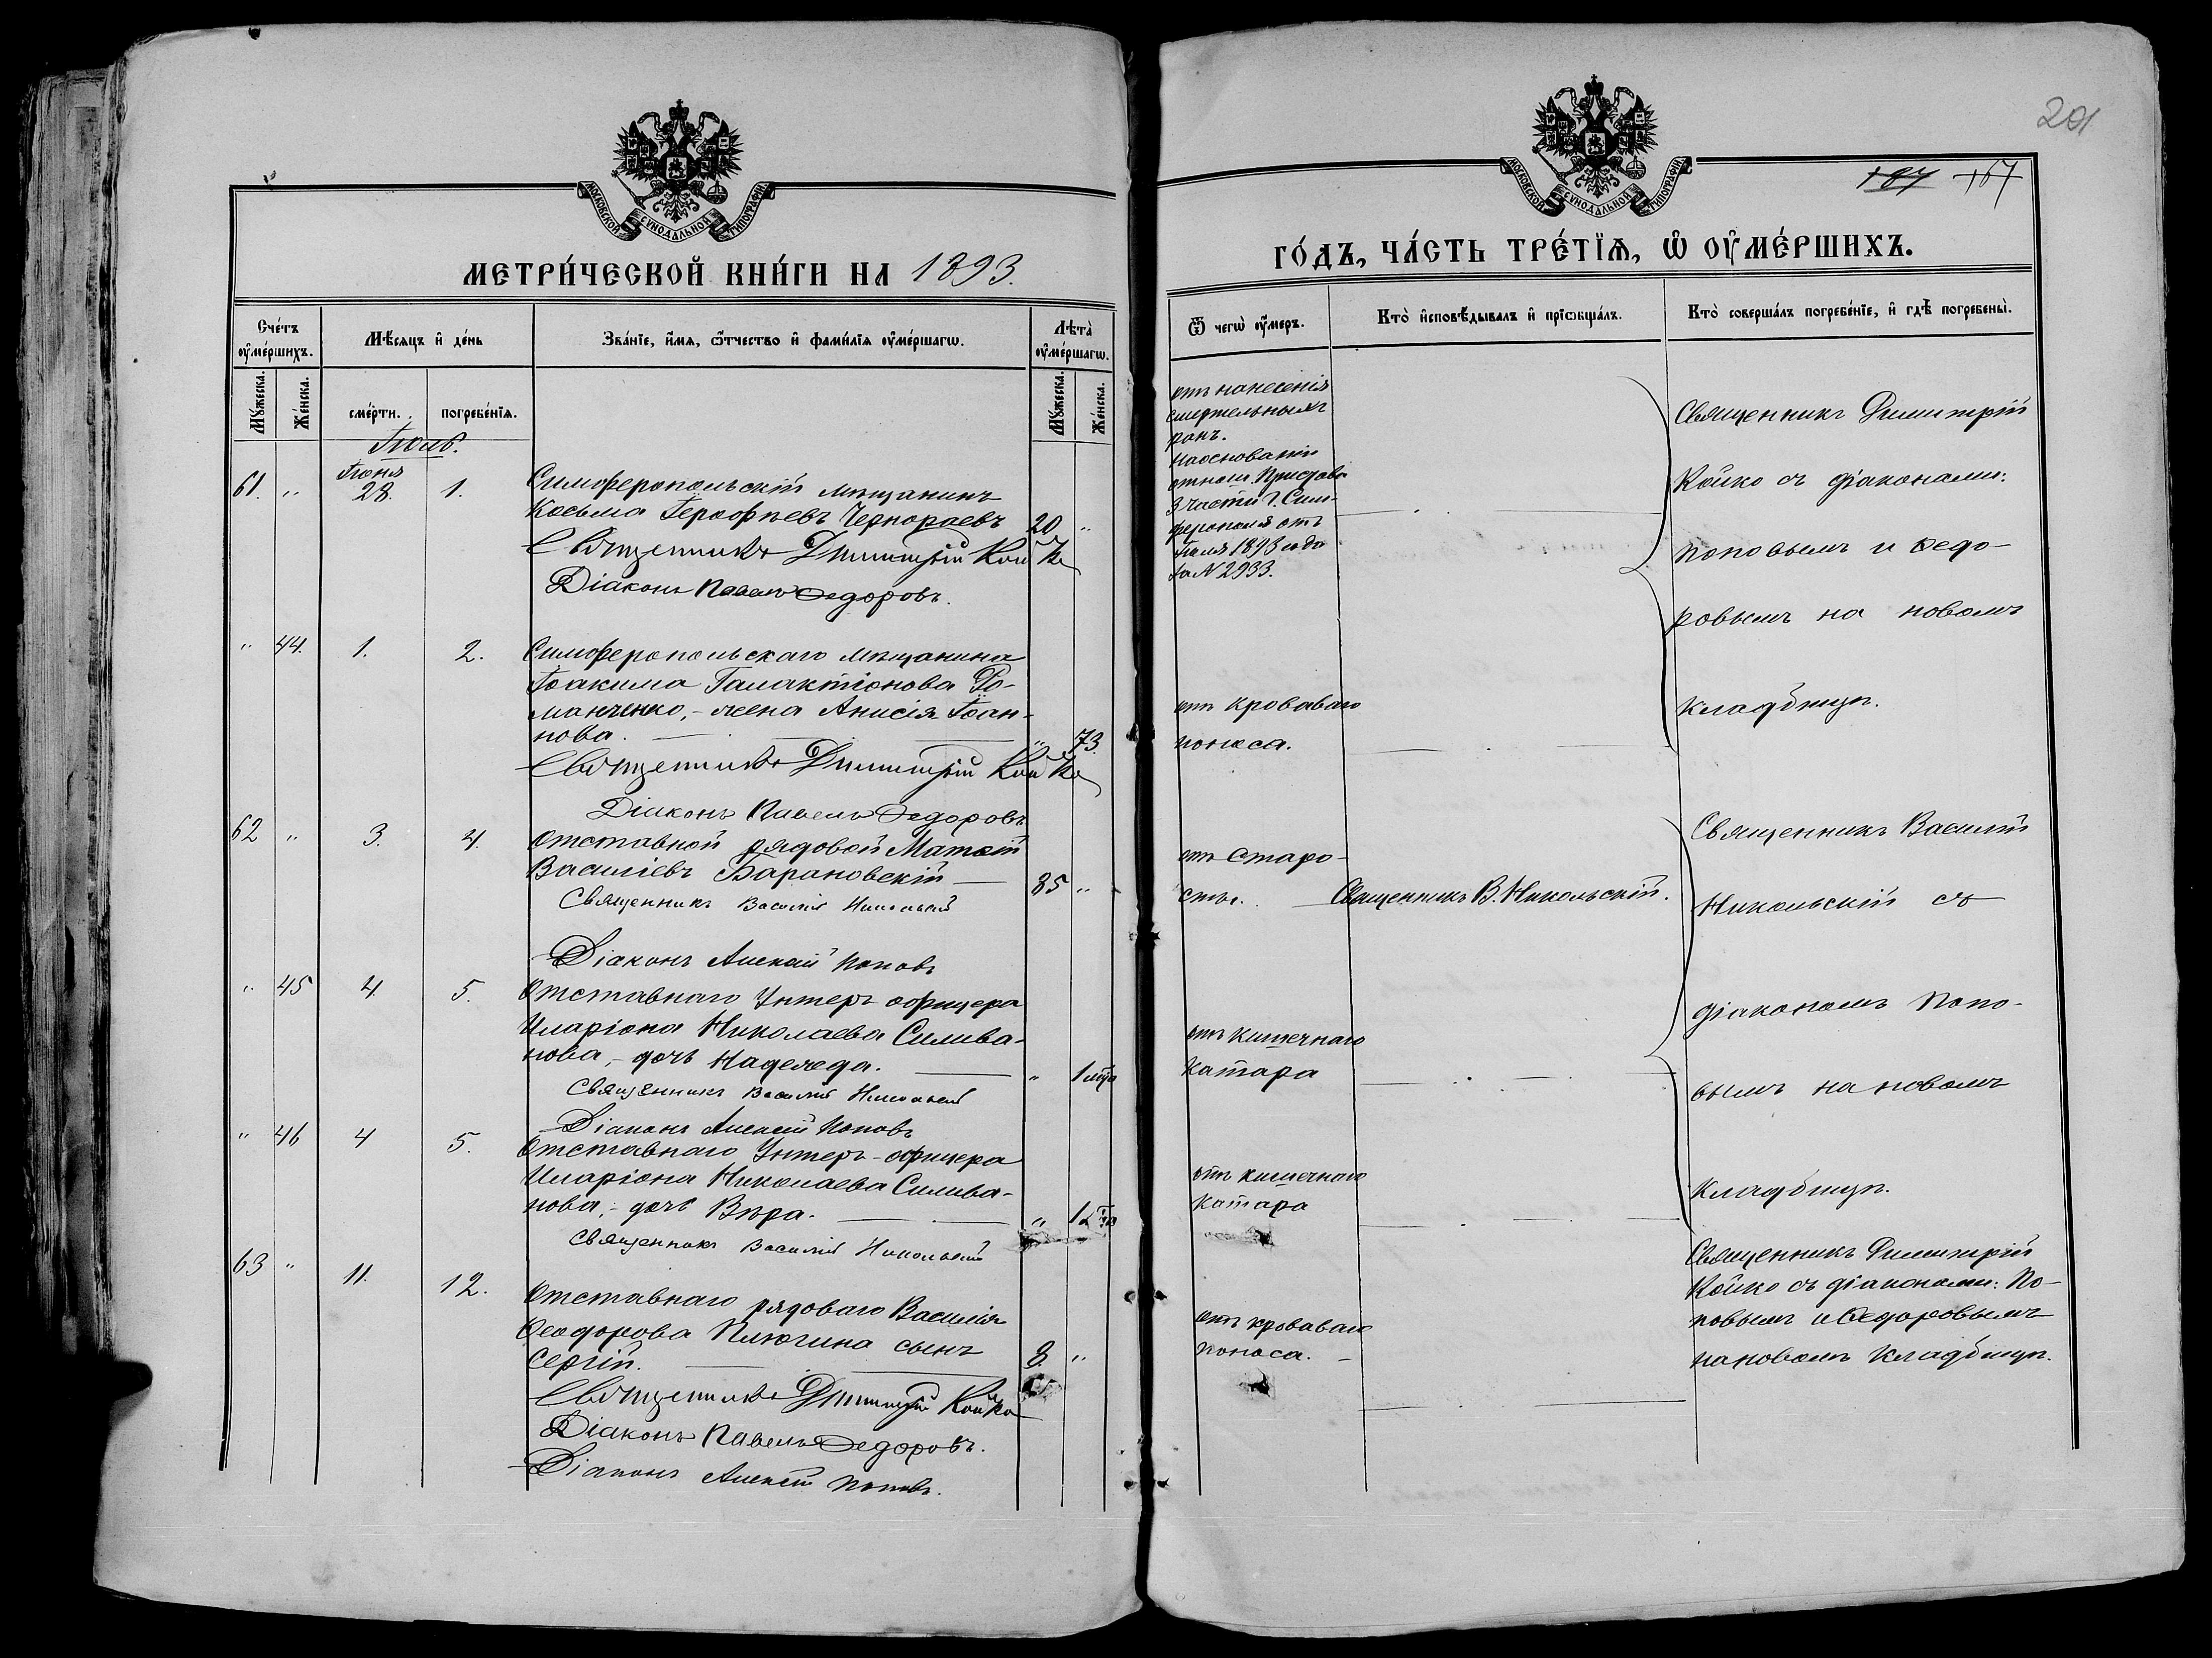 МОСКОВСКОЙ СУНОДАЛЬНОЙ ТИПОГРАФІИ
МЕТРИ́ЧЕСКОЙ КНИ́ГИ НА 1893.
Сче́тъ ᲂу҆ме́ршихъ.
Мѣ́сяцъ и҆ де́нь
Зва́нїе, и҆́мѧ, ѻ҆́тчество и҆ фами́лїѧ ᲂу҆ме́ршагѡ.
Лѣта̀ ᲂу҆ме́ршагѡ.
Мꙋ́жеска.
Же́нска.
сме́рти.
погребе́нїѧ.
Мꙋ́жеска.
Же́нска.
Іюль.
61. " Іюня 28. 1.
Симферопольскій мѣщанинъ
Косьма Героѳеевъ Чернораевъ 20 "
Священникъ Димитрій Койко
Діаконъ Павелъ Ѳедоровъ.
" 44. 1. 2.
Симферопольскаго мѣщанина
Іоакима Галактіонова Ро-
манченко,- жена Анисія Іоан-
нова. " 73.
Священникъ Димитрій Койко
Діаконъ Павелъ Ѳедоровъ
62 " 3. 4.
Отставной рядовой Матѳей
Василіевъ Барановскій 85 "
Священникъ Василій Никольскій
Діаконъ Алексій Поповъ
" 45 4. 5.
Отставнаго Унтеръ офицера
Иларіона Николаева Силива-
нова,- дочь Надежда. " 1 мца
Священникъ Василій Никольскій
Діаконъ Алексій Поповъ
" 46 4 5.
Отставнаго Унтеръ-офицера
Иларіона Николаева Силива-
нова,- дочь Вѣра. "
Священникъ Василій Никольскій
63 " 11. 12.
Отставнаго рядоваго Василія
Ѳеодорова Плюгина сынъ
Сергій. 8. "
Священникъ Димитрій Койко
Діаконъ Павелъ Ѳедоровъ.
Діаконъ Алексій Поповъ.
201
187 167
МОСКОВСКОЙ СУНОДАЛЬНОЙ ТИПОГРАФІИ
ГО́ДЪ, ЧА́СТЬ ТРЕ́ТЇѦ, Ѽ ОУ҆МЕ́РШИХЪ.
Ѿ чегѡ̀ ᲂу҆́меръ.
Кто̀ и҆сповѣ́дывалъ и҆ прїѡбща́лъ.
Кто̀ соверша́лъ погребе́нїе, и҆ гдѣ̀ погребены̀.
отъ нанесенія
смертельныхъ
ранъ.
На основаніи
отнош. Пристава
3 части г. Сим-
ферополя отъ
Іюля 1893 года
за N 2933.
Священникъ Димитрій
Койко съ діаконами:
Поповымъ и Ѳедо-
ровымъ на новомъ
кладбищѣ.
отъ кроваваго
поноса.
отъ старо-
сти.
Священникъ В. Никольскій.
Священникъ Василій
Никольскій съ
діакономъ Попо-
вымъ на новомъ
кладбищѣ.
отъ кишечнаго
катара
отъ кишечнаго
катара
отъ кроваваго
поноса.
Священникъ Димитрій
Койко съ діаконами: По-
повымъ и Ѳедоровымъ
на новомъ кладбищѣ.